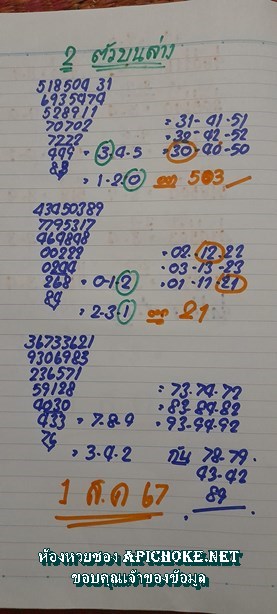 2 ตัวบนล่าง
518504 31
6935474
528911
70702 = 31-41-51
7772 = 32-42-52
449 = 3-4-5 = 30-40-50
88 = 1-2-0 503
43450389
7795317
469848
00222 = 02-12-22
0244 = 03-13-23
268 = 0-1-2 = 01-11-21
84 = 2-3-1 21
36733621
9306983
236571
59128 = 73-74-72
4030 = 83-84-82
433 = 7-8-9 = 93-94-92
76 = 3-4-2 กัน 78-79
43-42
89
1 ส.ค 67
ห้องหวยซอง APICHOKE.NET
ขอบคุณเจ้าของข้อมูล